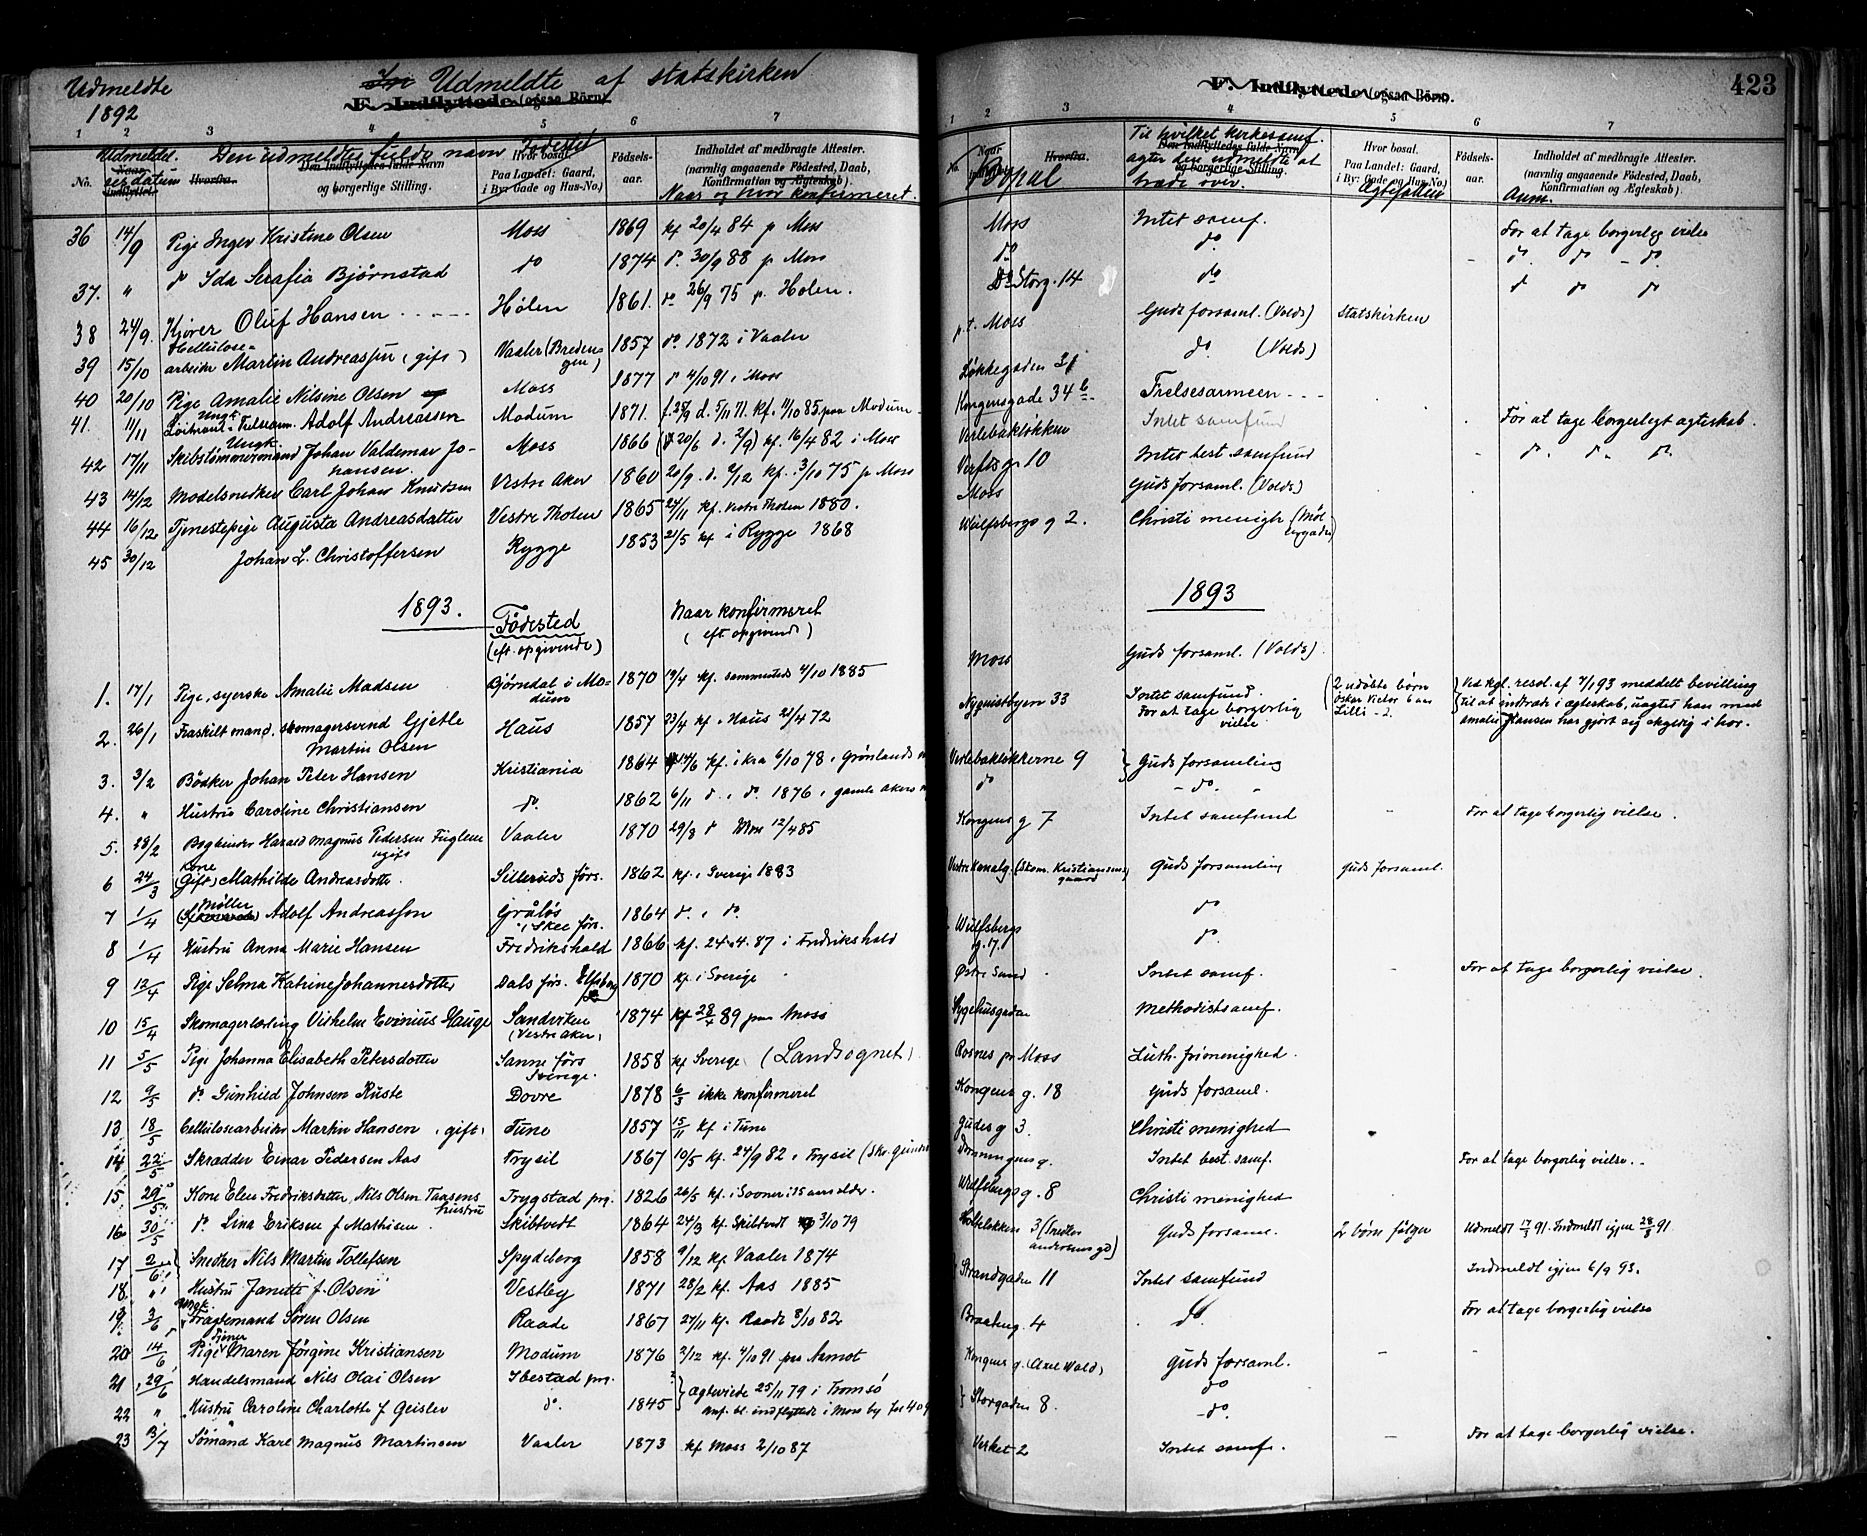 Udmeldte
1892
Udmeldte af statskirken
F. Indflyttede (ogsaa Börn).
1 2 3 4 5 6 7
No. Udmeldt. Naar indflyttet. Hvorfra. Den Indflyttedes fulde Navn og borgerlige Stilling. Hvor bosat. Paa Landet: Gaard, i By: Gade og Hus-No.) Fødsels-aar. Indholdet af medbragte Attester. (navnlig angaaende Födested, Daab, Konfirmation og Ægteskab).
Den udmeldtes fulde navn Fødested
Naar og hvor konfirmeret.
36 14/9 Pige Inger Kristine Olsen Moss 1869 kf 20/4 84 p Moss
37. " do Ida Serafia Bjørnstad do 1874 do 30/9 88 p Moss
38 24/9. Kjører Oluf Hansen Hölen 1861. do 26/9 75 p. Holen.
39 15/10 Cellulose-arbeider Martin Andreassen (gift) Vaaler (Breden-gen) 1857 do 1872 i Vaaler
40 20/10 Pige Amalie Nilsine Olsen Moss 1877 do 4/10 91 i Moss
41. 11/11 Ungk. Adolf Andreassen Modum 1871. kf. 11/10 85 paa Modum
42 17/11 Ungk. Skibstömmermand Johan Valdemar Jo-hansen. Moss 1866 kf. 16/4 82 i Moss
43 14/12 Modelsnedker Carl Johan Knudsen Vestre Aker 1860 20/9. kf. 3/10 75 p Moss
44 16/12 Tjenestepige Augusta Andreasdatter Vestre Thoten 1865 24/11 kf. Vestre Thoten 1880.
45 30/12 Johan L. Christoffersen Rygge 1853 21/5 kf i Rygge 1868
1893.
Födested (eft. opgivende)
Naar konfirmeret (eft opgivende)
1. 17/1 Pige, syerske Amalie Madsen Bjørndal i Mo-dum 1870 19/4 kf. sammesteds 4/10 1885
2. 26/1 Fraskilt mand, skomagersvend Gjetle Martin Olsen Haus 1857 23/4 kf i Haus 21/4 72
3. 3/2 Bödker Johan Peter Hansen Kristiania 1864 kf. i Kra 6/10 78 i Grønlands
4. " Hustru Caroline Christiansen do. 1862 6/11 do. i do. 1876 i gamle Akers
5. 28/2 Bogbinder Harald Magnus Pedersen Fuglene ugift Vaaler 1870 29/8 do Moss 12/4 85
6 24/3 Kone (Gift) Mathilde Andreasdotter. Silleruds förs. 1862 kf. i Sverige 1883
7 1/4 Møller Adolf Andreasson i Skee förs. 1864 do. i do.
8 1/4 Hustru Anna Marie Hansen Fredrikshald 1866 kf. 24.4.87 i Fredrikshald
9 13/4 Pige Selma Katrine Johannesdotter Dals förs. Elfsborg 1870 kf. i Sverige
10 15/4 Skomagerlærling Vilhelm Evinius Hauge Sandviken (Vestre Aker) 1874 kf 28/4 89 paa Moss
11 5/5 Pige Johanna Elisabeth Petersdotter Sanne förs Sverige. 1858 kf Sverige (Landsognet)
12 9/5 do Gunhild Johnsen Ruste Dovre 1878 6/3 ikke konfirmeret
13 18/5 Cellulosearbeider Martin Hansen, gift, Tune 1857 15/11 kf i Tune
14 22/5 Skrædder Einar Pedersen Aas Trysil 1867 10/5 kf. 24/9 82 i Trysil
15 29/5 Kone Elen Fredriksdatter, Nils Olsen Taasens hustru Trygstad prg. 1826 26/5 kf. i Sooner i 15 aars alder.
16 30/5 do. Lina Eriksen f Mathisen. Skibtvedt 1864 24/3 kf. Skibtvedt 3/10 79
17 2/6 Snedker Nils Martin Tollefsen Spydeberg 1858 9/12 kf. Vaaler 1874
18. " Hustru Janette f. Olsen Vestby 1871 28/2 kf. Aas 1885
19. 3/6 Ungk. Fragtemand Søren Olsen Raade 1867 27/11 kf. Raade 8/10 82
20 14/6 Pige Maren Jörgine Kristiansen Modum 1876 2/12 kf. 4/10 91 paa Aamot
21 29/6 Handelsmand Nils Olai Olsen Ibestad prg. Ægteviede 25/11 79 i Tromsö
22 " Hustru Caroline Charlotte f Geisler do. 1845 Anf. bl. indflyttede i Moss by
23 13/7 Sömand Karl Magnus Martinsen Vaaler 1873 kf Moss 2/10 87
F. Indflyttede (ogsaa Börn).
423
1 2 3 4 5 6 7
Naar indflyttet. Hvorfra. Den Indflyttedes fulde Navn og borgerlige Stilling. Hvor bosat. Paa Landet: Gaard, i By: Gade og Hus-No.) Fødsels-aar. Indholdet af medbragte Attester. (navnlig angaaende Födested, Daab, Konfirmation og Ægteskab).
Bopæl
Til hvilket kirkesamf. agter den udmeldte at træde over.
Ægtefællen
Anm.
Moss Intet samf. For at tage borgerlig vielse
do do. do. do - do.
Do Storg. 14 do do do do
p.t. Moss Guds forsaml. (Volds) Statskirken
Løkkegaden 31 do. (Volds)
Kongensgade 34 b Frelsesarmeen
Verlebakløkken Intet samfund For at tage borgerligt ægteskab.
Verfts g. 10 Intet best. samfund do. do. do.
Moss Guds forsaml. (Volds)
Wulfsbergs g 2. Christi menigh. (Møl-lergaden)
1893
Moss Guds forsaml. (Volds)
Nyquistbyen 33 Intet samfund. For at tage borgerlig vielse (2 udøbte børn Oskar Victor 6 aar Lilli - 2. Ved kgl. resol. af 7/1 93 meddelt bevilling til at indtræde i ægteskab, uagtet han med Amalie Hansen har gjort sig skyldig i hor.
Verlebakløkkerne 9 Guds forsamling
do - do. -
Kongens g 7 Intet samfund - For at tage borgerlig vielse.
Vestre Kanalg. (Skom. Kristiansens gaard) Guds forsamling Guds forsaml.
do
Wulfsbergs g. 7. do.
Østre Sund Intet samf. - For at tage borgerlig vielse.
Sygehusgaden Methodistsamf.
Rosnes pr Moss Luth. frimenighed.
Kongens g. 18 Guds forsaml.
Gudes g 3. Christi menighed
Dronningens g. Intet best. samf. For at tage borgerlig vielse.
Wulfsbergs g. 8 Christi menighed
3 Guds forsaml. 2 børn følger Udmeldt 17/3 91. Indmeldt igjen 28/8 91.
Strandgaden 11 Intet samfund Indmeldt igjen 6/9 93.
Braateng. 4 do. For at tage borgerlig vielse
Kongens g. (Axel Wold) Guds forsaml. - -
Storgaden 8. do
- do.
Verket 2 Intet samf. - For at tage borgerlig vielse.